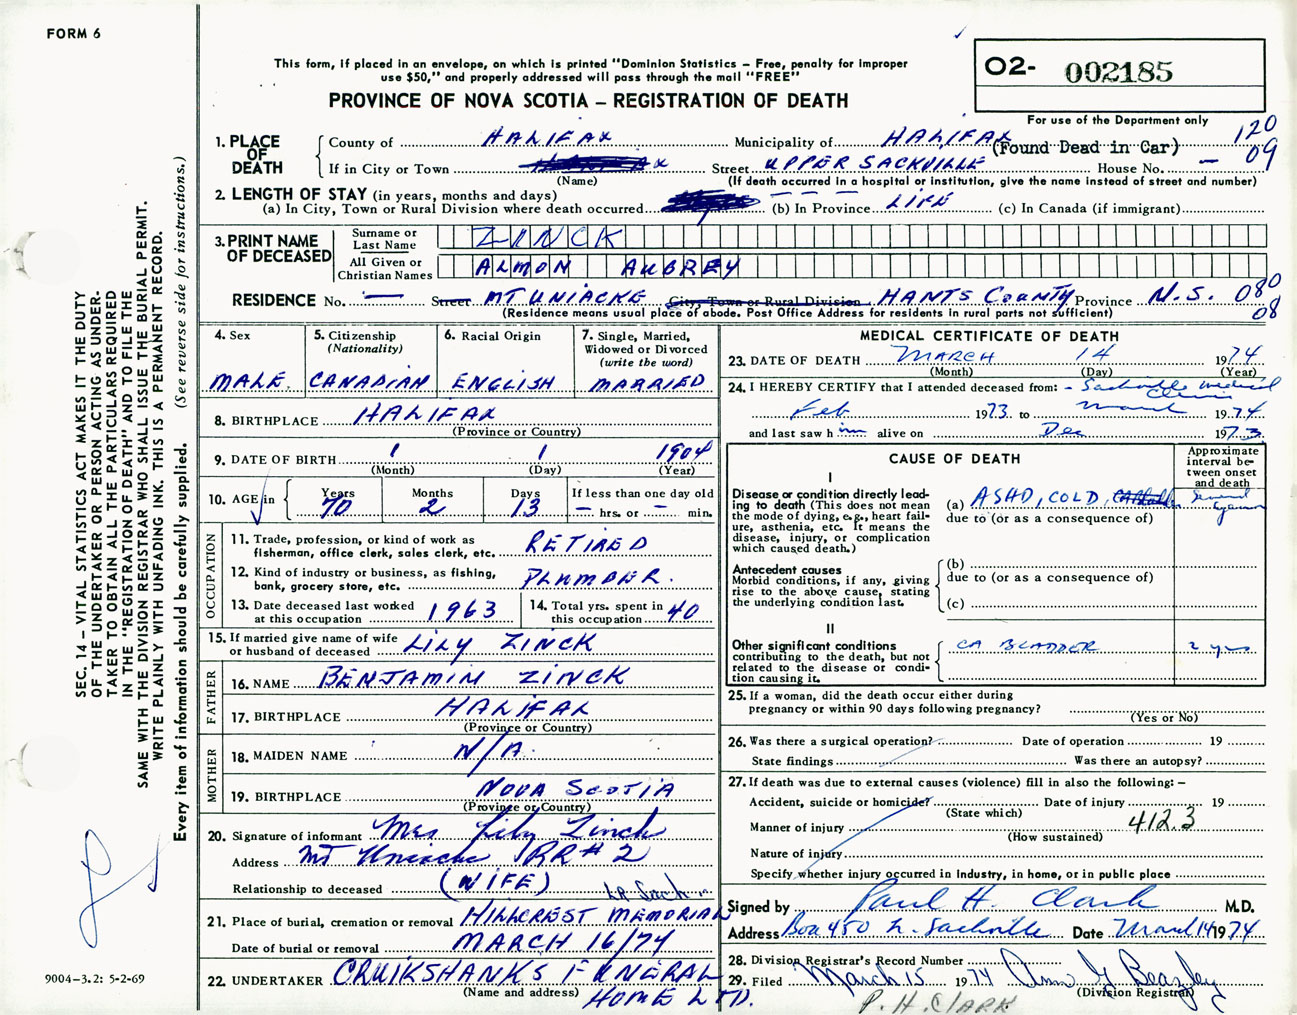 FORM 6
This form, if placed in an envelope, on which is printed "Dominion Statistics – Free, penalty for improper
use $50," and properly addressed will pass through the mail "FREE"
PROVINCE OF NOVA SCOTIA – REGISTRATION OF DEATH
02- 002185
For use of the Department only
120
09
1. PLACE OF DEATH
County of HALIFAX Municipality of HALIFAX
(Found Dead in Car)
If in City or Town Street UPPER SACKVILLE House No. –
(Name) (If death occurred in a hospital or institution, give the name instead of street and number)
2. LENGTH OF STAY (in years, months and days)
(a) In City, Town or Rural Division where death occurred (b) In Province LIFE (c) In Canada (if immigrant)
3. PRINT NAME OF DECEASED
Surname or Last Name ZINCK
All Given or Christian Names ALMON AUBREY
RESIDENCE No. — Street MT UNIACKE City, Town or Rural Division HANTS COUNTY Province N.S. 080
(Residence means usual place of abode. Post Office Address for residents in rural parts not sufficient) 08
4. Sex MALE
5. Citizenship (Nationality) CANADIAN
6. Racial Origin ENGLISH
7. Single, Married, Widowed or Divorced (write the word) MARRIED
8. BIRTHPLACE HALIFAX
(Province or Country)
9. DATE OF BIRTH 1 1 1904
(Month) (Day) (Year)
10. AGE in Years 70 Months 2 Days 13
If less than one day old
– hrs. or – min.
OCCUPATION
11. Trade, profession, or kind of work as
fisherman, office clerk, sales clerk, etc. RETIRED
12. Kind of industry or business, as fishing,
bank, grocery store, etc. PLUMBER.
13. Date deceased last worked
at this occupation 1963
14. Total yrs. spent in
this occupation 40
15. If married give name of wife
or husband of deceased LILY ZINCK
FATHER
16. NAME BENJAMIN ZINCK
17. BIRTHPLACE HALIFAX
(Province or Country)
MOTHER
18. MAIDEN NAME N/A
19. BIRTHPLACE NOVA SCOTIA
(Province or Country)
20. Signature of informant Mrs Lily Zinck
Address Mt Uniacke RR#2
Relationship to deceased (WIFE)
21. Place of burial, cremation or removal HILLCREST MEMORIAL
Date of burial or removal MARCH 16/74
22. UNDERTAKER CRUIKSHANKS FUNERAL
(Name and address) HOME LTD.
MEDICAL CERTIFICATE OF DEATH
23. DATE OF DEATH MARCH 14 1974
(Month) (Day) (Year)
24. I HEREBY CERTIFY that I attended deceased from: – Sackville Medical
Clinic
Feb 1973 to March 1974
and last saw him alive on Dec 1973
CAUSE OF DEATH
Approximate
interval be-
tween onset
and death
I
Disease or condition directly lead-
ing to death (This does not mean
the mode of dying, e.g., heart fail-
ure, asthenia, etc. It means the
disease, injury, or complication
which caused death.)
(a) ASHD, COLD, Several
due to (or as a consequence of) years
Antecedent causes
Morbid conditions, if any, giving
rise to the above cause, stating
the underlying condition last.
(b)
due to (or as a consequence of)
(c)
II
Other significant conditions
contributing to the death, but not
related to the disease or condi-
tion causing it.
CA BLADDER 2 yrs
25. If a woman, did the death occur either during
pregnancy or within 90 days following pregnancy?
(Yes or No)
26. Was there a surgical operation? Date of operation 19
State findings Was there an autopsy?
27. If death was due to external causes (violence) fill in also the following: –
Accident, suicide or homicide? Date of injury 19
(State which)
Manner of injury 412.3
(How sustained)
Nature of injury
Specify whether injury occurred in Industry, in home, or in public place
Signed by Paul H. Clark M.D.
Address Box 450 L. Sackville Date March 14 1974
28. Division Registrar's Record Number
29. Filed March 15 1974 Ann G Beazley
(Division Registrar)
P. H. CLARK
SEC. 14 – VITAL STATISTICS ACT MAKES IT THE DUTY
OF THE UNDERTAKER OR PERSON ACTING AS UNDER-
TAKER TO OBTAIN ALL THE PARTICULARS REQUIRED
IN THE "REGISTRATION OF DEATH" AND TO FILE THE
SAME WITH THE DIVISION REGISTRAR WHO SHALL ISSUE THE BURIAL PERMIT.
WRITE PLAINLY WITH UNFADING INK. THIS IS A PERMANENT RECORD.
Every item of information should be carefully supplied. (See reverse side for instructions.)
9004-3.2: 5-2-69